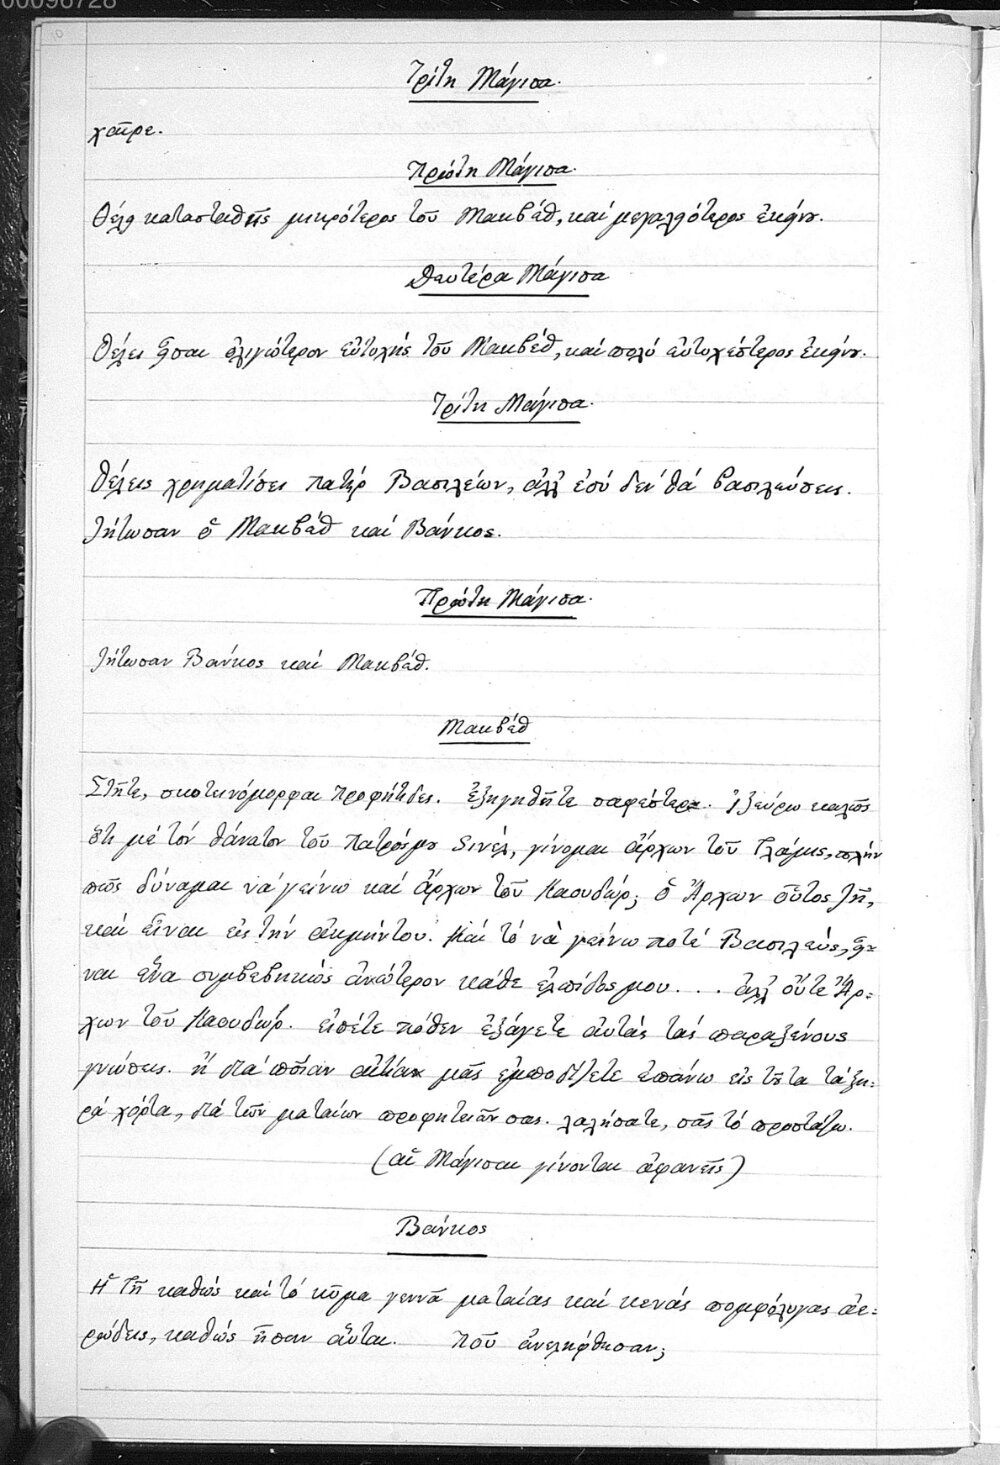 00096728
10
Τρίτη Μάγισα.
χαῖρε.
Πρώτη Μάγισα.
Θέλῃ κατασταθῆς μικρότερος τοῦ Μακβὲθ, καί μεγαλῃότερος ἐκείνου.
Δευτέρα Μάγισα
Θέλει ᾖσαι ὀλιγώτερον εὐτυχής τοῦ Μακβέθ, καί πολύ εὐτυχέστερος ἐκείνου.
Τρίτη Μάγισα.
Θέλεις χρηματίσει πατήρ Βασιλείων, ἀλλ' ἐσύ δέν θά βασιλεύσεις.
Ζήτωσαν ὁ Μακβέθ καί Βάνκος.
Πρώτη Μάγισα.
Ζήτωσαν Βάνκος καί Μακβέθ.
Μακβέθ
Στῆτε, σκοτεινόμορφαι προφήτιδες. ἐξηγηθῆτε σαφέστερα. Ἠξεύρω καλῶς
ὅτι μέ τόν θάνατον τοῦ πατρός μου Σινέλ, γίνομαι ἄρχων τοῦ Γλάμις, πλήν
πῶς δύναμαι νά γείνω καί ἄρχων τοῦ Καουδώρ; ὁ Ἄρχων οὗτος ζῇ,
καί εἶναι εἰς τήν ἀκμήν του. Καί τό νὰ γείνω ποτέ Βασιλεύς, εἶ-
ναι ἕνα συμβεβηκώς ἀνώτερον κάθε ἐλπίδος μου . . . ἀλλ' οὔτε Ἄρ-
χων τοῦ Καουδώρ. εἰπέτε πόθεν ἐξάγετε αὐτάς τάς παραξένους
γνώσεις. ἤ διά ποίαν αἰτίαν μᾶς ἐμποδίζετε ἐπάνω εἰς τοῦτα τά ξη-
ρά χόρτα, διά τῶν ματαίων προφητειῶν σας. λαλήσατε, σᾶς τό προστάζω.
(αἱ Μάγισαι γίνονται ἀφανεῖς)
Βάνκος
Ἡ Γῆ καθώς καί τό κῦμα γεννᾶ ματαίας καί κενάς πομφόλυγας ἀε-
ρώδεις, καθώς ἦσαν αὗται. Ποῦ ἀνελήφθησαν;